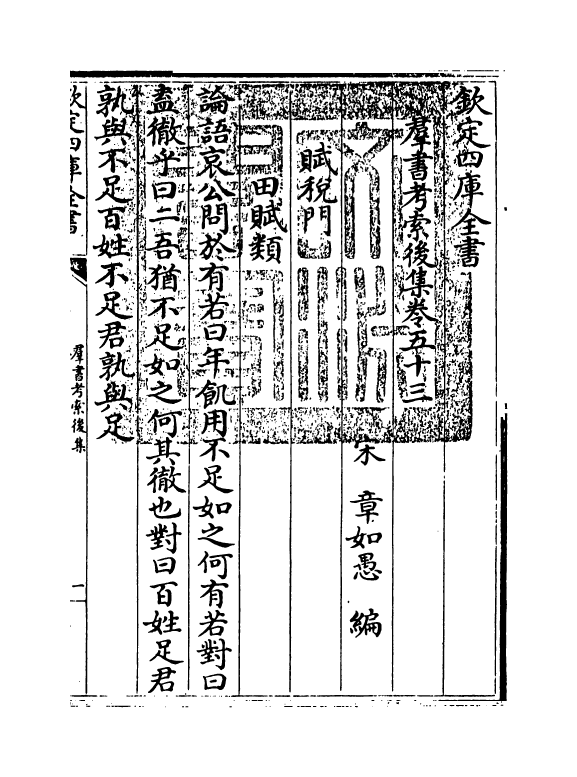 欽定四庫全書
羣書考索後集卷五十三
宋 章如愚 編
賦稅門
田賦類
論語哀公問於有若曰年飢用不足如之何有若對曰
盍徹乎曰二吾猶不足如之何其徹也對曰百姓足君
孰與不足百姓不足君孰與足
欽定四庫全書
羣書考索後集
一